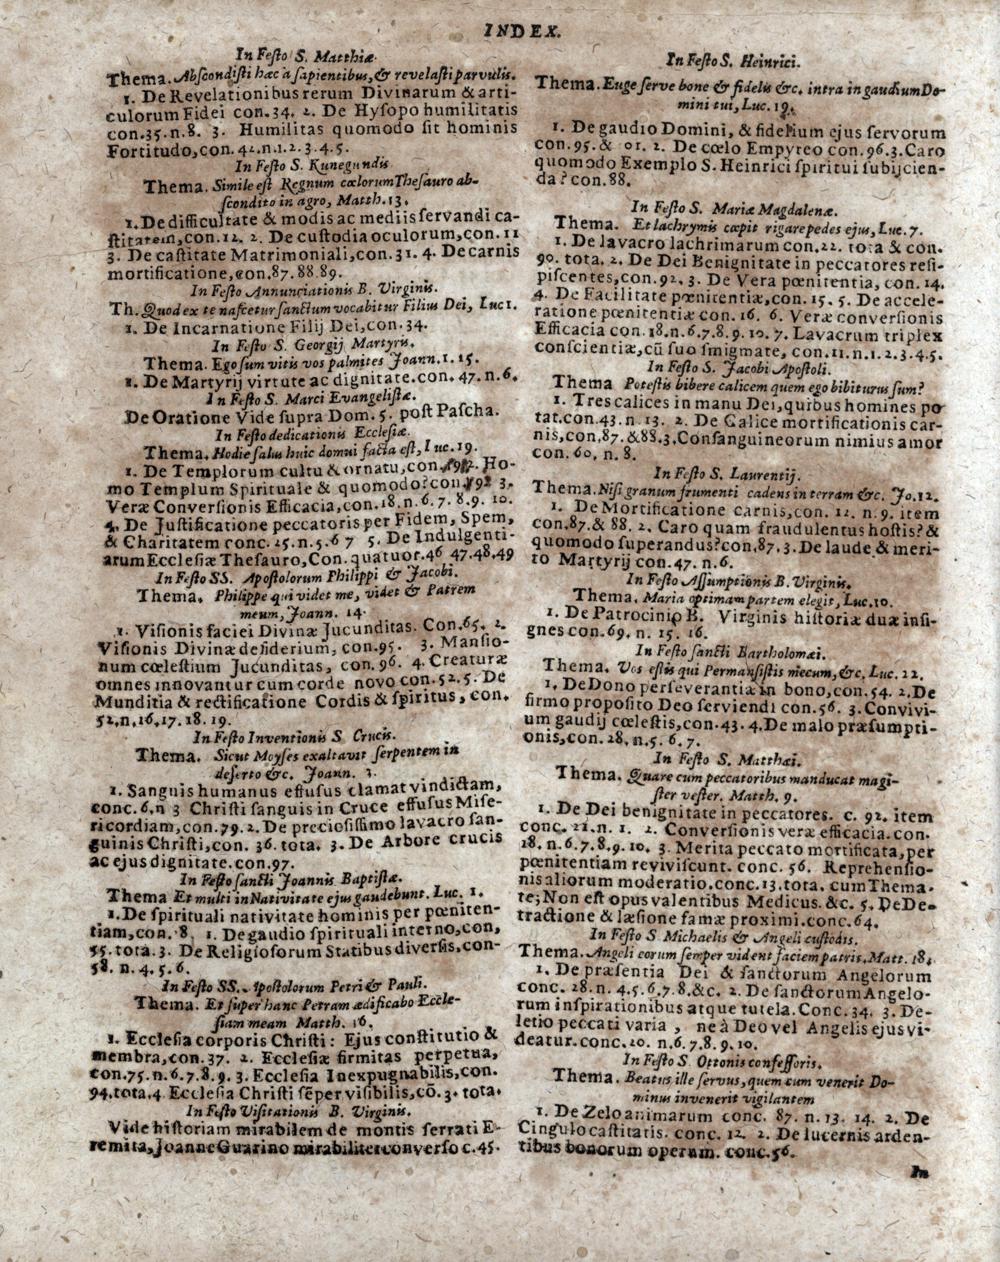 INDEX.
In Festo S. Matthiæ
Thema. Abscondisti hæc à sapientibus, & revelasti parvulis.
1. De Revelationibus rerum Divinarum & arti-
culorum Fidei con. 34. 2. De Hysopo humilitatis
con. 35. n. 8. 3. Humilitas quomodo sit hominis
Fortitudo, con. 42. n. 1. 2. 3. 4. 5.
In Festo S. Kunegundis
Thema. Simile est Regnum cœlorum Thesauro ab-
scondito in agro, Matth. 13.
1. De difficultate & modis ac mediis servandi ca-
stitatem, con. 12. 2. De custodia oculorum, con. 11
3. De castitate Matrimoniali, con. 31. 4. De carnis
mortificatione, con. 87. 88. 89.
In Festo Annunciationis B. Virginis.
Th. Quod ex te nascetur sanctum vocabitur Filius Dei, Luc 1.
1. De Incarnatione Filij Dei, con. 34.
In Festo S. Georgij Martyris.
Thema. Ego sum vitis vos palmites Joann. 1. 15.
1. De Martyrij virtute ac dignitate. con. 47. n. 6.
In Festo S. Marci Evangelistæ.
De Oratione Vide supra Dom. 5. post Pascha.
In Festo dedicationis Ecclesiæ.
Thema. Hodie salus huic domui facta est, Luc. 19.
1. De Templorum cultu & ornatu, con. Ho-
mo Templum Spirituale & quomodo? con. 3.
Veræ Conversionis Efficacia, con. 18. n. 6. 7. 8. 9. 10.
4. De Justificatione peccatoris per Fidem, Spem,
& Charitatem conc. 25. n. 5. 6 7 5. De Indulgenti-
arum Ecclesiæ Thesauro, Con. quatuor. 46 47. 48. 49
In Festo SS. Apostolorum Philippi & Jacobi.
Thema. Philippe qui videt me, videt & Patrem
meum, Joann. 14.
1. Visionis faciei Divinæ Jucunditas. Con. 65. 2.
Visionis Divinæ desiderium, con. 95. 3. Mansio-
num cœlestium Jucunditas, con. 96. 4. Creaturæ
omnes innovantur cum corde novo con. 52. 5. De
Munditia & rectificatione Cordis & spiritus, con.
52, n, 16, 17. 18. 19.
In Festo Inventionis S. Crucis.
Thema. Sicut Moyses exaltavit serpentem in
deserto &c. Joann. 3.
1. Sanguis humanus effusus clamat vindictam,
conc. 6, n 3 Christi sanguis in Cruce effusus Mise-
ricordiam, con. 79. 2. De preciosissimo lavacro san-
guinis Christi, con. 36. tota. 3. De Arbore crucis
ac ejus dignitate. con. 97.
In Festo sancti Joannis Baptistæ.
Thema Et multi in Nativitate ejus gaudebunt. Luc. 1.
1. De spirituali nativitate hominis per pœniten-
tiam, con. 8. 1. De gaudio spirituali interno, con,
55. tota. 3. De Religiosorum Statibus diversis, con-
58. n. 4. 5. 6.
In Festo SS. Apostolorum Petri & Pauli.
Thema. Et super hanc Petram ædificabo Eccle-
siam meam Matth. 16.
1. Ecclesia corporis Christi: Ejus constitutio &
membra, con. 37. 2. Ecclesiæ firmitas perpetua,
con. 75. n. 6. 7. 8. 9. 3. Ecclesia Inexpugnabilis, con.
94. tota. 4 Ecclesia Christi sẽper visibilis, cõ. 3. tota.
In Festo Visitationis B. Virginis.
Vide historiam mirabilem de montis serrati E-
remita, Joanne Guarino mirabiliter converso c. 45.
In Festo S. Heinrici.
Thema. Euge serve bone & fidelis &c. intra in gaudium Do-
mini tui, Luc. 19.
1. De gaudio Domini, & fidelium ejus servorum
con. 95. & 01. 2. De cœlo Empyreo con. 96. 3. Caro
quomodo Exemplo S. Heinrici spiritui subijcien-
da? con. 88.
In Festo S. Mariæ Magdalenæ.
Thema. Et lachrymis cœpit rigare pedes ejus, Luc. 7.
1. De lavacro lachrimarum con. 22. tota & con.
90. tota. 2. De Dei Benignitate in peccatores resi-
piscentes, con. 92. 3. De Vera pœnitentia, con. 14.
4. De Facilitate pœnitentiæ, con. 15. 5. De accele-
ratione pœnitentiæ con. 16. 6. Veræ conversionis
Efficacia con. 18. n. 6. 7. 8. 9. 10. 7. Lavacrum triplex
conscientiæ, cũ suo smigmate, con. 11. n. 1. 2. 3. 4. 5.
In Festo S. Jacobi Apostoli.
Thema Potestis bibere calicem quem ego bibiturus sum?
1. Tres calices in manu Dei, quibus homines po
tat. con. 43. n. 13. 2. De Calice mortificationis car-
nis, con. 87. & 88. 3. Consanguineorum nimius amor
con. 60. n. 8.
In Festo S. Laurentij.
Thema. Nisi granum frumenti cadens in terram &c. Jo. 12.
1. De Mortificatione carnis, con. 12. n. 9. item
con. 87. & 88. 2. Caro quam fraudulentus hostis? &
quomodo superandus? con. 87. 3. De laude & meri-
to Martyrij con. 47. n. 6.
In Festo Assumptionis B. Virginis.
Thema. Maria optimam partem elegit, Luc. 10.
1. De Patrocinio B. Virginis historiæ duæ insi-
gnes con. 69. n. 15. 16.
In Festo sancti Bartholomæi.
Thema. Vos estis qui Permansistis mecum, &c, Luc. 22.
1. De Dono perseverantiæ in bono, con. 54. 2. De
firmo proposito Deo serviendi con. 56. 3. Convivi-
um gaudij cœlestis, con. 43. 4. De malo præsumpti-
onis, con. 28. n. 5. 6. 7.
In Festo S. Matthæi.
Thema. Quare cum peccatoribus manducat magi-
ster vester. Matth. 9.
1. De Dei benignitate in peccatores. c. 92. item
conc. 21. n. 1. 2. Conversionis veræ efficacia. con.
18. n. 6. 7. 8. 9. 10. 3. Merita peccato mortificata, per
pœnitentiam reviviscunt. conc. 56. Reprehensio-
nis aliorum moderatio. conc. 13. tota. cum Thema.
te; Non est opus valentibus Medicus. &c. 5. De De-
tractione & læsione famæ proximi. conc. 64.
In Festo S Michaelis & Angeli custodis.
Thema. Angeli eorum semper vident faciem patris, Matt. 18.
1. De præsentia Dei & sanctorum Angelorum
conc. 28. n. 4. 5. 6. 7. 8. &c. 2. De sanctorum Angelo-
rum inspirationibus atque tutela. Conc. 34. 3. De-
letio peccati varia, ne à Deo vel Angelis ejus vi-
deatur. conc. 20. n. 6. 7. 8. 9. 10.
In Festo S. Ottonis confessoris.
Thema. Beatus ille servus, quem cum venerit Do-
minus invenerit vigilantem
1. De Zelo animarum conc. 87. n. 13. 14. 2. De
Cingulo castitatis. conc. 12. 2. De lucernis arden-
tibus bonorum operum. conc. 56.
In